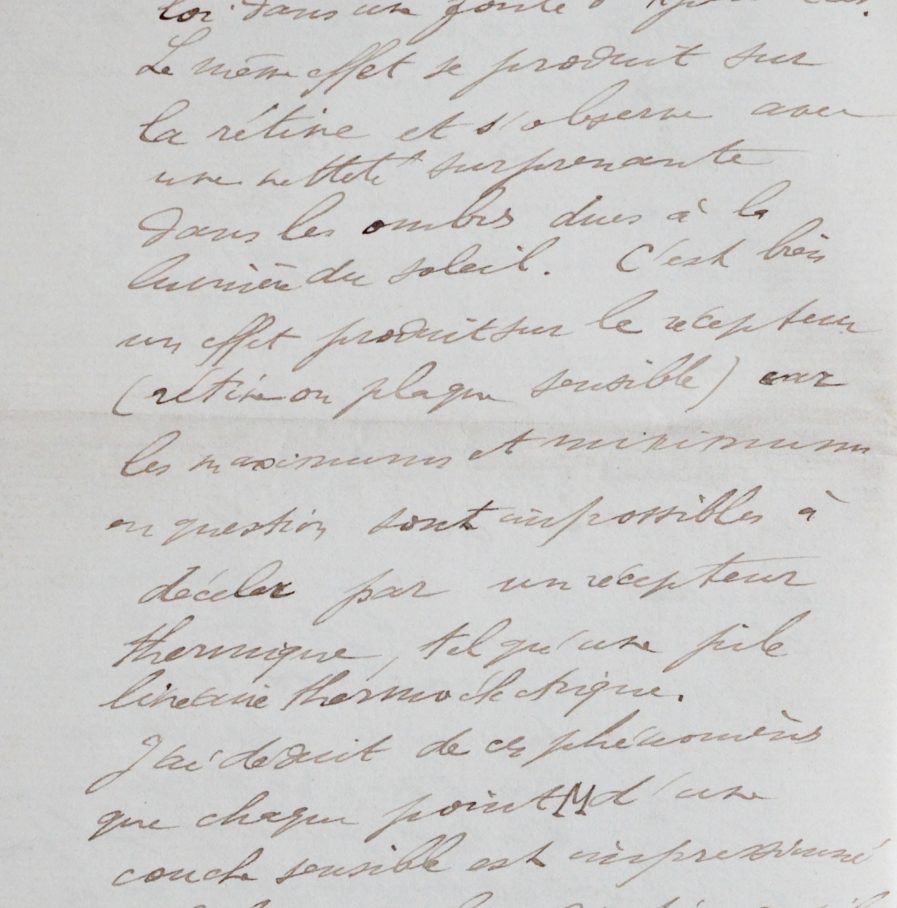 loi dans une
Le même effet se produit sur
la rétine et s'observe avec
une netteté surprenante
dans les ombres dues à la
lumière du soleil. C'est bien
un effet produit sur le récepteur
(rétine ou plaque sensible) car
les maximums et minimums
en question sont impossibles à
déceler par un récepteur
thermique, tel qu'une pile
linéaire thermoélectrique.
J'ai déduit de ces phénomènes
que chaque point M d'une
couche sensible est impressionné